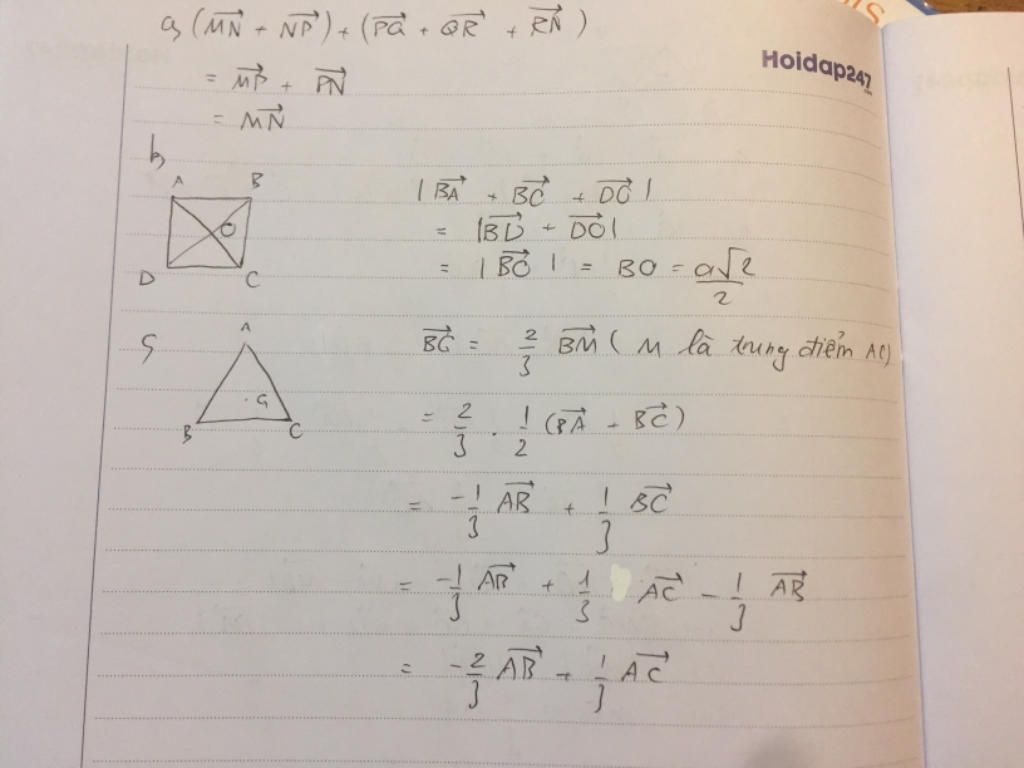 a, (MN + NP) + (PQ + QR + RN)
Hoidap247
= MP + PN
= MN
b,
A B
O
D C
|BA + BC + DO|
= |BD + DO|
= |BO| = BO = a√2/2
c,
A
G
B C
BG = 2/3 BM ( M là trung điểm AC)
= 2/3 . 1/2 (BA + BC)
= -1/3 AB + 1/3 BC
= -1/3 AB + 1/3 AC - 1/3 AB
= -2/3 AB + 1/3 AC